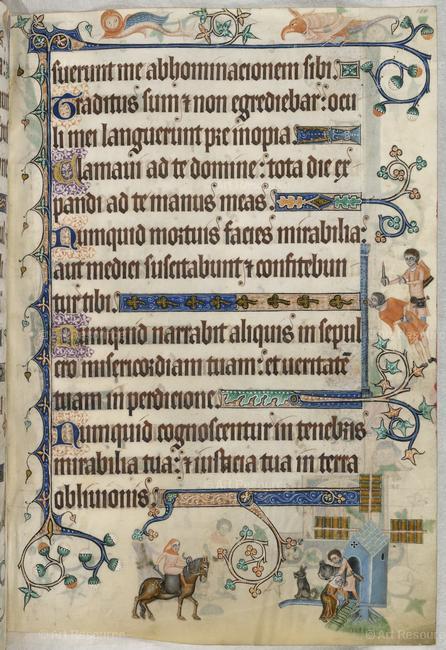 suerunt me abhominacionem sibi.
Traditus sum ⁊ non egrediebar: ocu
li mei languerunt pre inopia.
Clamaui ad te domine: tota die ex
pandi ad te manus meas.
Numquid mortuis facies mirabilia:
aut medici suscitabunt ⁊ confitebun
tur tibi.
Numquid narrabit aliquis in sepul
cro misericordiam tuam: et ueritatē
tuam in perdicione.
Numquid cognoscentur in tenebris
mirabilia tua: ⁊ iusticia tua in terra
obliuionis.
© Art Resource
© Art Resource